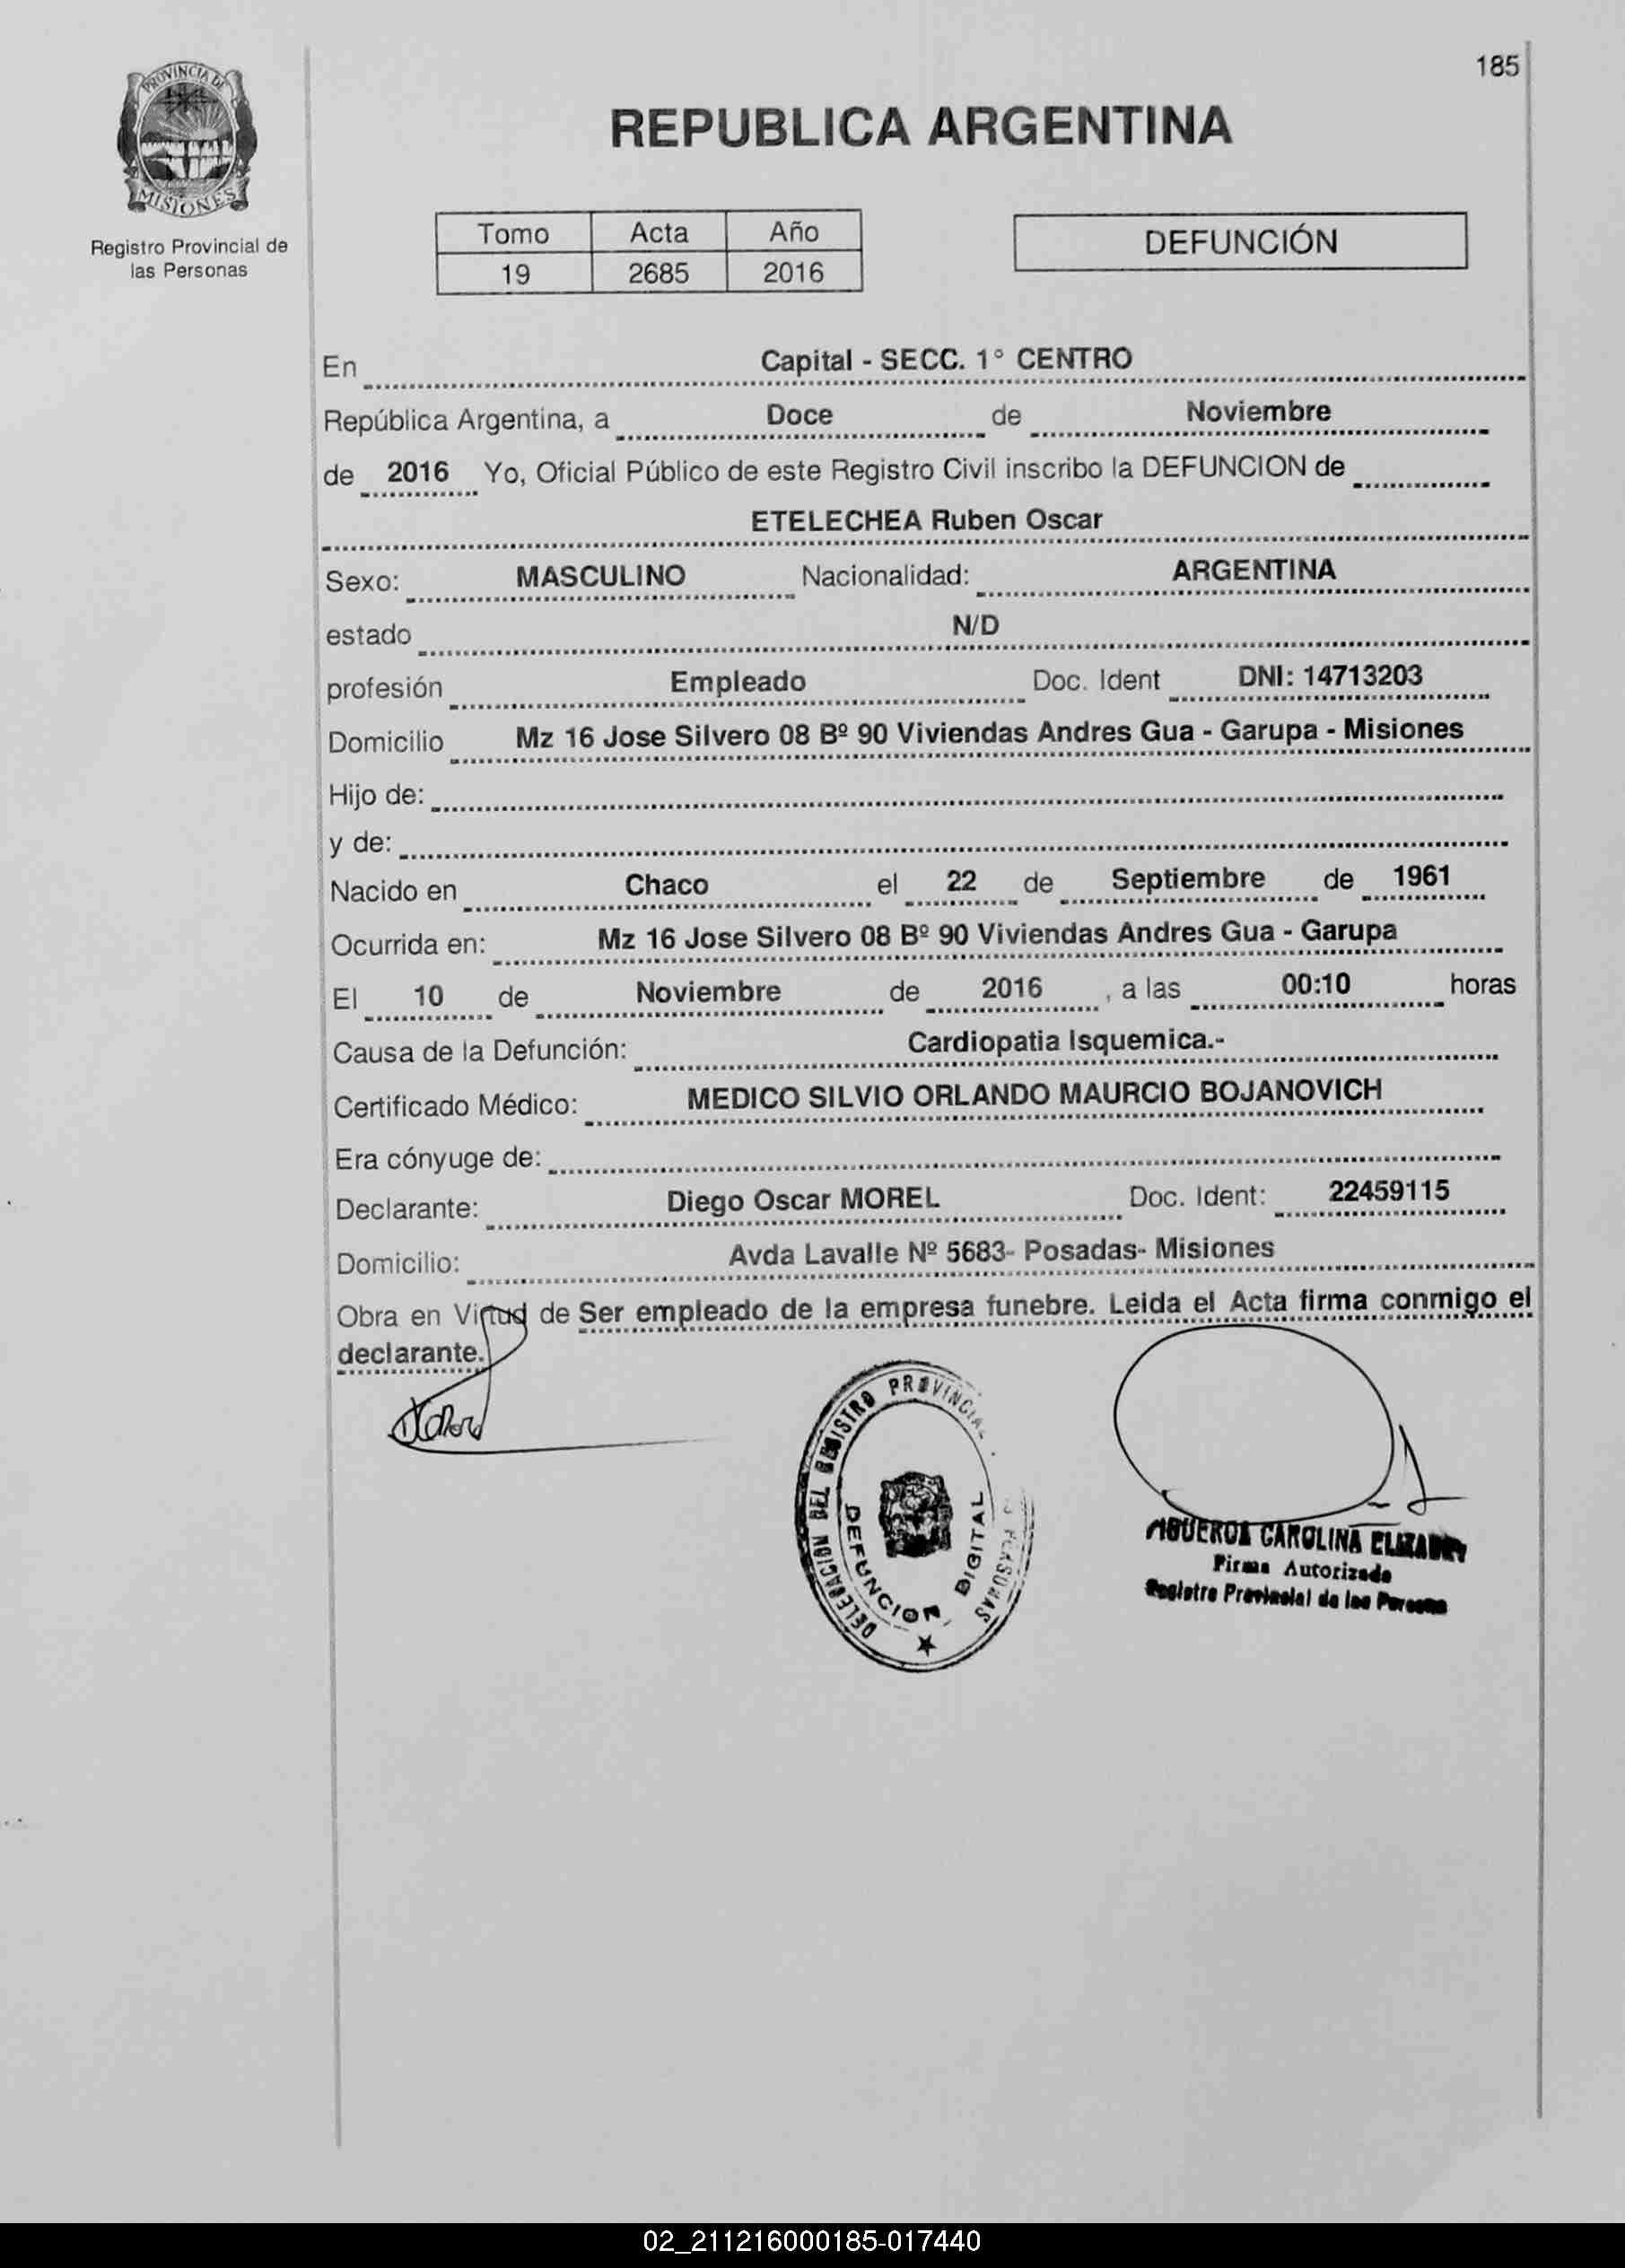 185
PROVINCIA DE
MISIONES
Registro Provincial de
las Personas
REPUBLICA ARGENTINA
Tomo Acta Año
19 2685 2016
DEFUNCIÓN
En Capital - SECC. 1° CENTRO
República Argentina, a Doce de Noviembre
de 2016 Yo, Oficial Público de este Registro Civil inscribo la DEFUNCION de
ETELECHEA Ruben Oscar
Sexo: MASCULINO Nacionalidad: ARGENTINA
estado N/D
profesión Empleado Doc. Ident DNI: 14713203
Domicilio Mz 16 Jose Silvero 08 Bº 90 Viviendas Andres Gua - Garupa - Misiones
Hijo de:
y de:
Nacido en Chaco el 22 de Septiembre de 1961
Ocurrida en: Mz 16 Jose Silvero 08 Bº 90 Viviendas Andres Gua - Garupa
El 10 de Noviembre de 2016 , a las 00:10 horas
Causa de la Defunción: Cardiopatia Isquemica.-
Certificado Médico: MEDICO SILVIO ORLANDO MAURCIO BOJANOVICH
Era cónyuge de:
Declarante: Diego Oscar MOREL Doc. Ident: 22459115
Domicilio: Avda Lavalle Nº 5683- Posadas- Misiones
Obra en Virtud de Ser empleado de la empresa funebre. Leida el Acta firma conmigo el
declarante.
DELEGACION DEL REGISTRO PROVINCIAL PERSONAS
DEFUNCION DIGITAL
CAROLINA
Firma Autorizada
Registro Provincial de las Personas
02_211216000185-017440